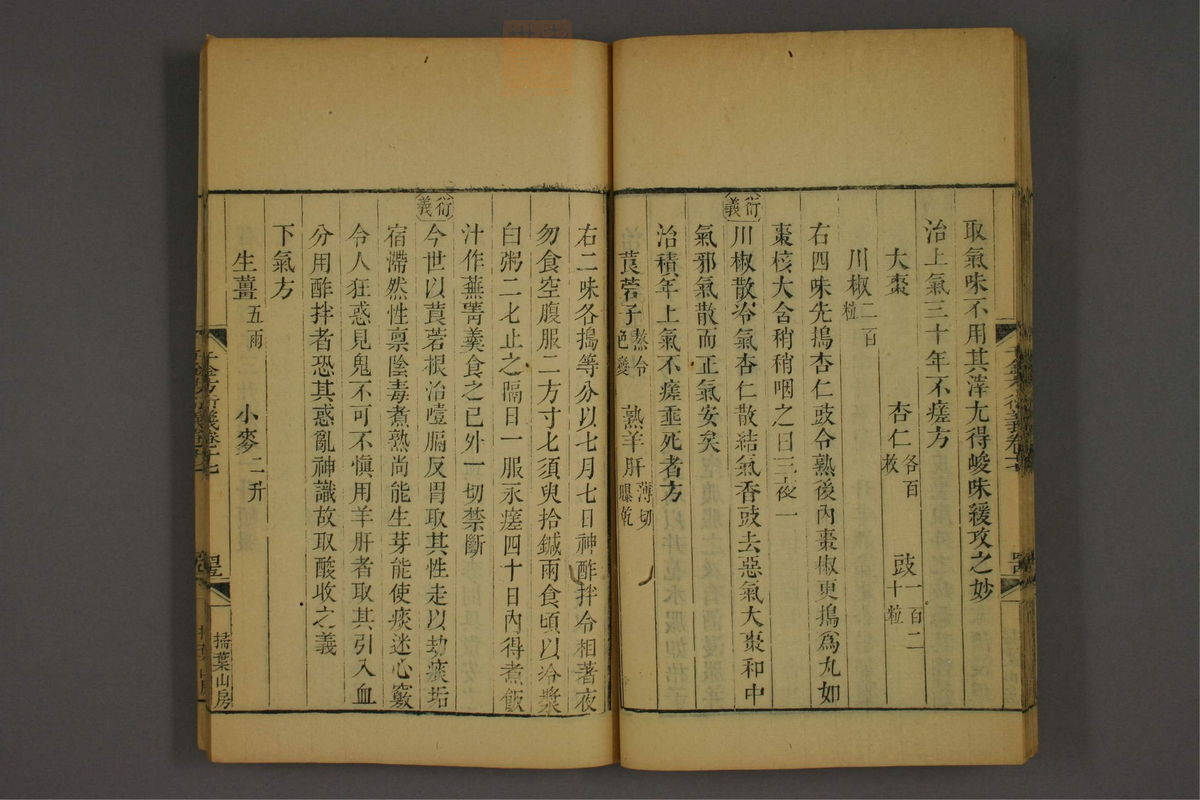 取氣味不用其滓尤得峻味緩攻之妙
治上氣三十年不瘥方
大棗 杏仁各百枚 豉一百二十粒
川椒二百粒
右四味先搗杏仁豉令熟後內棗椒更搗為丸如
棗核大含稍稍咽之日三夜一
衍義
川椒散冷氣杏仁散結氣香豉去惡氣大棗和中
氣邪氣散而正氣安矣
治積年上氣不瘥垂死者方
莨菪子熬令色變 熟羊肝薄切曝乾
右二味各搗等分以七月七日神酢拌令相著夜
勿食空腹服二方寸匕須臾拾鍼兩食頃以冷漿
白粥二七止之隔日一服永瘥四十日內得煮飯
汁作蕪菁羹食之已外一切禁斷
衍義
今世以莨菪根治噎膈反胃取其性走以劫痰垢
宿滯然性稟陰毒煮熟尚能生芽能使痰迷心竅
令人狂惑見鬼不可不慎用羊肝者取其引入血
分用酢拌者恐其惑亂神識故取酸收之義
下氣方
生薑五兩 小麥二升
掃葉山房